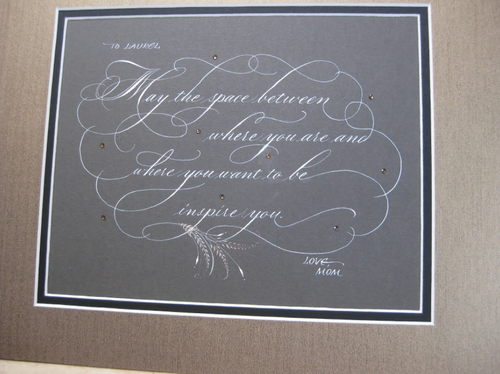 TO LAUREL
May the space between
where you are and
where you want to be
inspire you.
LOVE
MOM